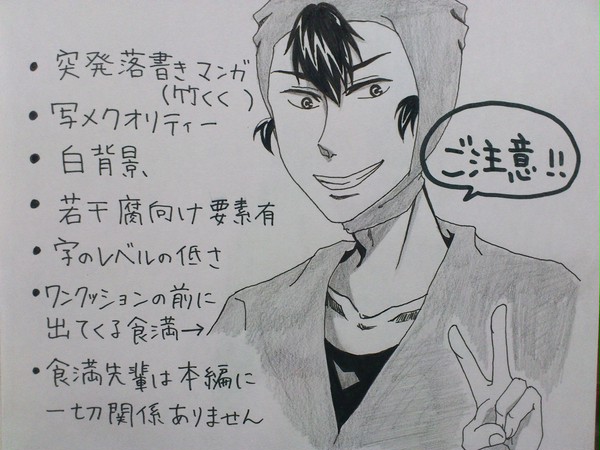 • 突発落書きマンガ
(竹くく)
• 写メクオリティー
• 白背景
• 若干腐向け要素有
• 字のレベルの低さ
• ワンクッションの前に
出てくる食満→
• 食満先輩は本編に
一切関係ありません
ご注意!!